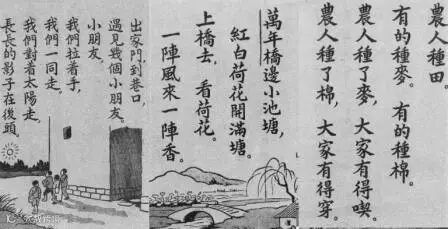 農人種田。
有的種麥。有的種棉。
農人種了麥，大家有得喫。
農人種了棉，大家有得穿。
萬年橋邊小池塘，
紅白荷花開滿塘。
上橋去，看荷花。
一陣風來一陣香。
出家門，到巷口，
遇見幾個小朋友。
小朋友，
我們拉着手，
我們一同走。
我們對着太陽走，
長長的影子在後頭。